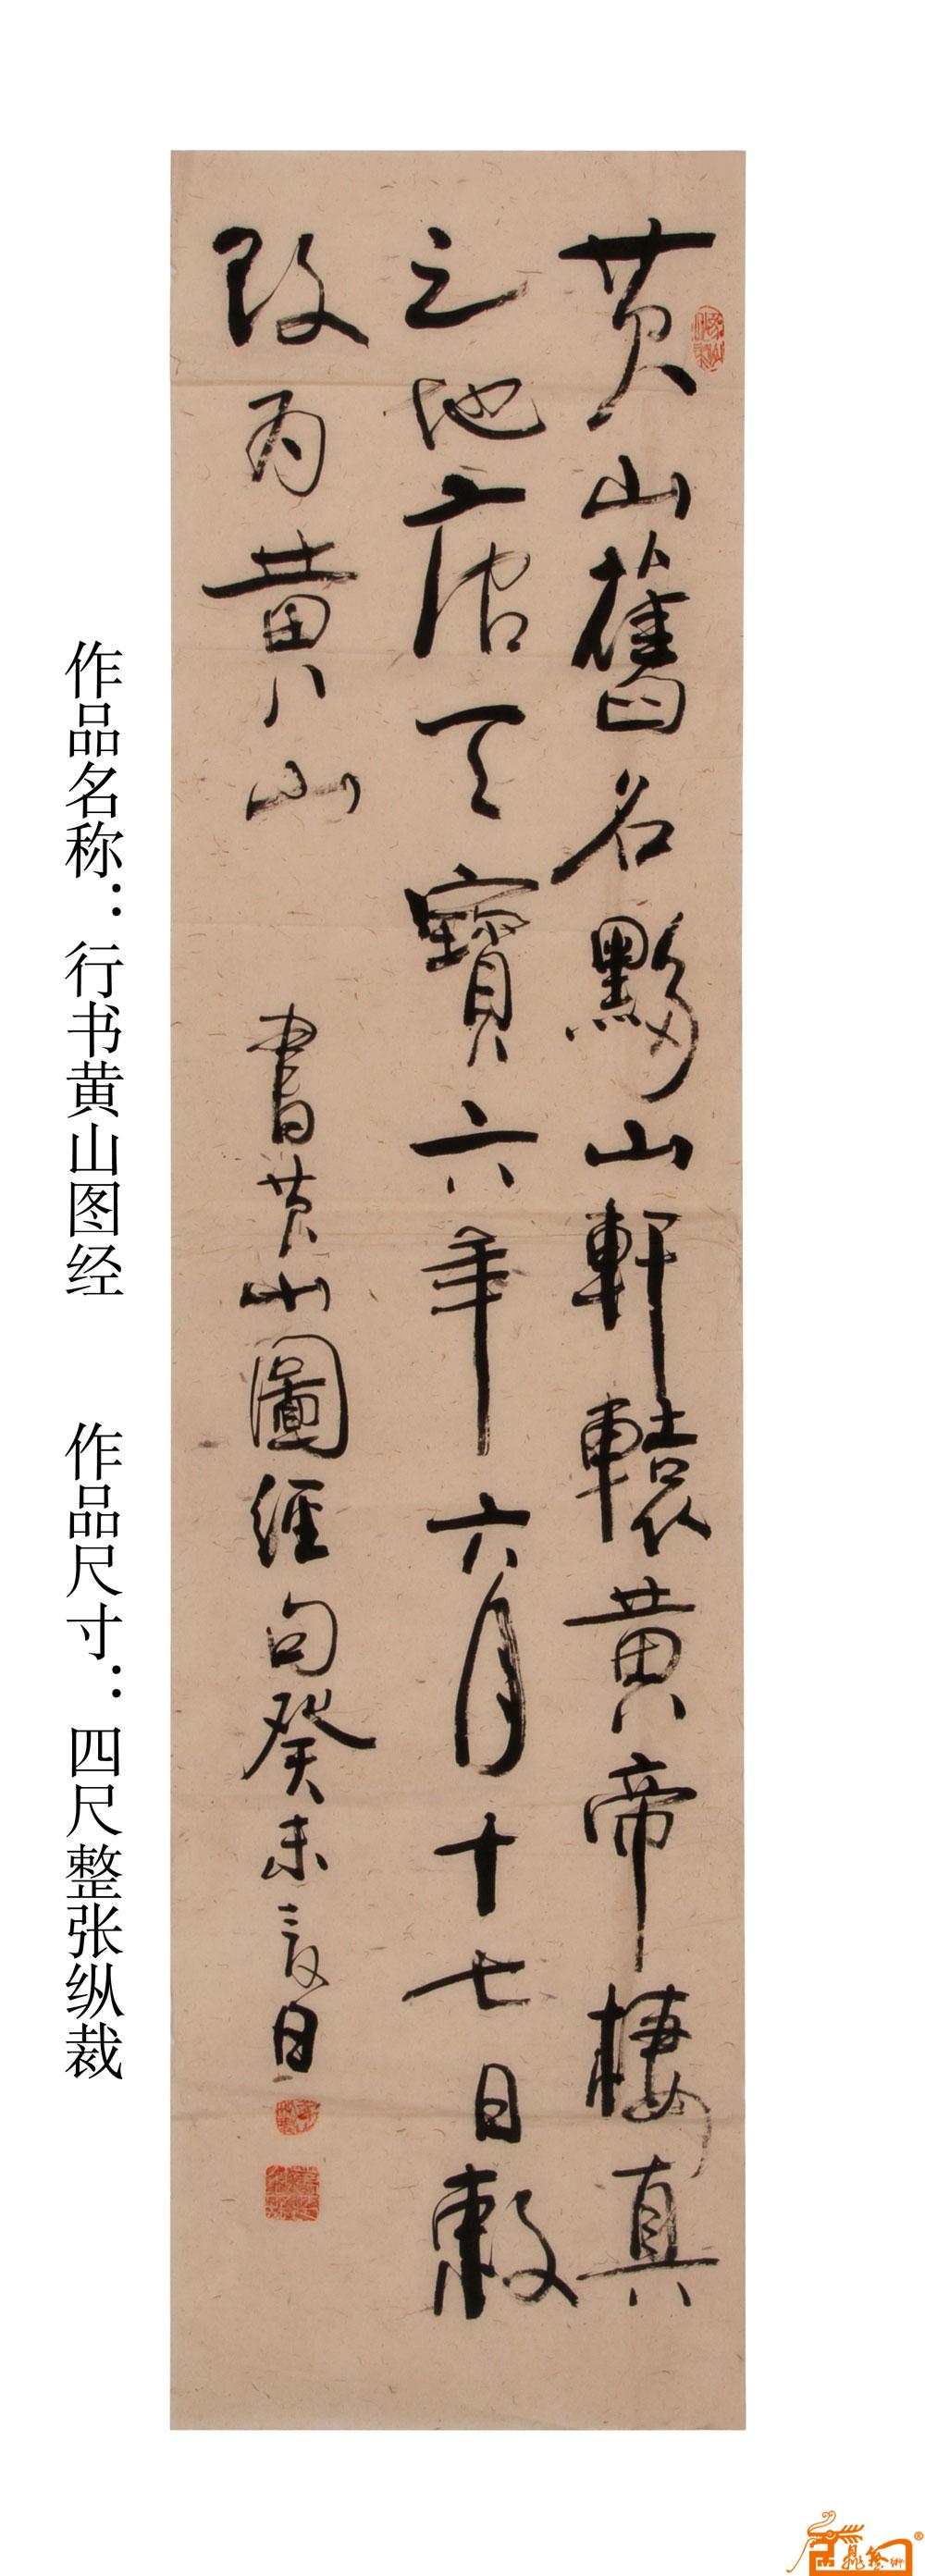 黄山舊名黟山軒轅黄帝棲真
之地唐天寶六年六月十七日敕
改为黄山
書黄山圖經句癸未
作品名称：行书黄山图经 作品尺寸：四尺整张纵裁